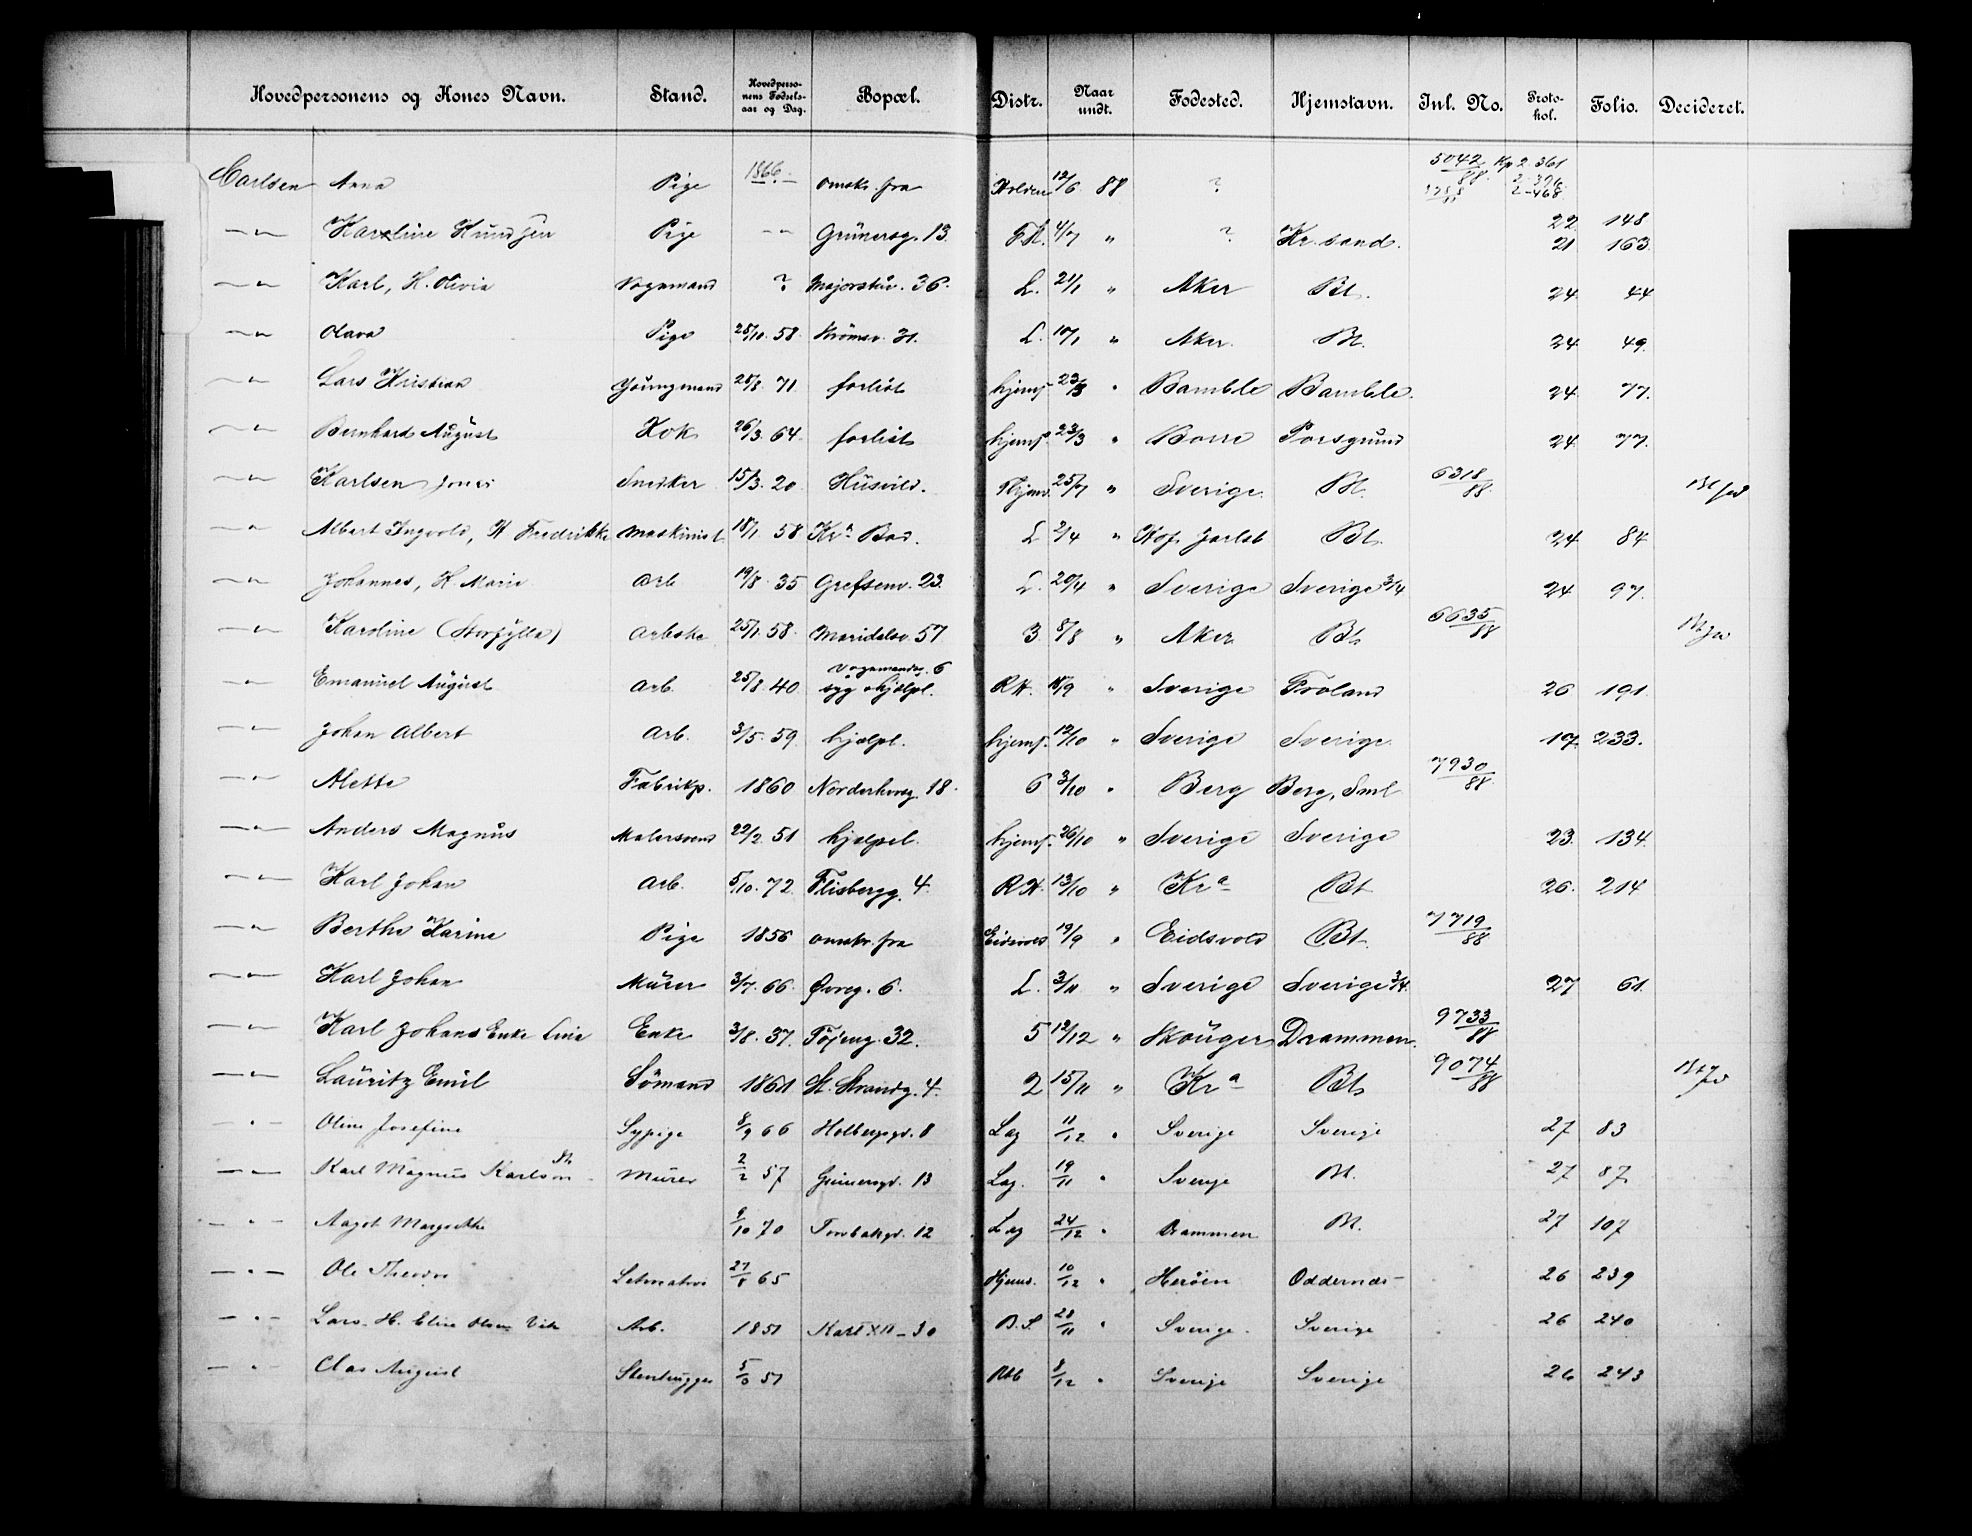 Hovedpersonens og Kones Navn. Stand. Hovedpersonens Fødselsaar og Dag. Bopæl. Distr. Naar undt. Fødested. Hjemstavn. Inl. No. Protokol. Folio. Decideret.
Carlsen Anna Pige 1866 omsk. fra Holden 12/6 88 ? 5042/88 Kp 2 361
—"— Karoline Pige —"— Grünersg. 13. 4/7 " ? Kr.sand. 22 148
21 163
—"— Karl, H. Olivia Vognmand ? Majorstuv. 36. L. 21/1 " Aker Bt. 24 44
—"— Olava Pige 25/10 58 Strömsv. 31. L. 10/1 " Aker. Bt. 24 49.
—"— Lars Kristian Youngmand 25/8 71 forlist hjemf. 23/3 " Bamble Bamble. 24 77.
—"— Bernhard August Kok 26/3 64 forlist hjemf. 23/3 " Borre Porsgrund 24 77.
—"— Karlsen Jones Snedker 15/3 20 Husvild. 25/7 " Sverige Bt. 6318/88
—"— Albert Ingvold, H Fredrikke Maskinist 18/1 58 Kra Bad. L 2/4 " Hof Jarlsb Bt. 24 84
—"— Johannes, H. Marie Arb 19/8 35 Grefsenv. 23. L. 20/4 " Sverige Sverige 3/4 24 97.
—"— Karoline (Storfylla) Arbske 25/1 58 Maridalsv. 57 3. 8/8 " Aker Bt 6635/88
—"— Emanuel August Arb. 25/8 40 Vognmandsg. 6
syg hjælpl. RH. 18/9 " Sverige Froland 26 191.
—"— Johan Albert Arb. 3/5 59. hjælpl. hjemf. 12/10 " Sverige Sverige 19 233.
—"— Alette Fabrikp. 1860 Norderhovsg. 18. 6 3/10 " Berg Berg, Sml 7930/88
—"— Anders Magnus Malersvend 22/2 51 hjelpel. hjemf. 26/10 " Sverige Sverige 23. 134.
—"— Karl Johan Arb. 5/10 72. Flisbergg. 4. RH. 13/10 " Kra Bt 26. 214
—"— Berthe Karine Pige 1856 omsk. fra Eidsvold 19/9 " Eidsvold Bt. 7719/88
—"— Karl Johan Murer 3/7 66. Øvreg. 6. L. 3/11 " Sverige Sverige 3/4. 27 61.
—"— Karl Johans Enke Lina Enke 3/8 37. Töjeng. 32. 5 12/12 " Skouger Drammen. 9733/88
—"— Lauritz Emil Sömand 1861 St. Strandg. 4. 2 15/11 " Kra Bt 9074/88
—"— Oline Josefine Sypige 8/9 66 Holbergsgd. 8 Lag 11/12 " Sverige Sverige 27 83
—"— Karl Magnus Karlson Murer 2/2 57 Grünersgd. 13 Lag. 19/11 " Sverige Bt. 27 87
—"— Aagot Margrethe 9/10 70 Torvbakgd. 12 Lag 24/12 " Drammen Bt. 27 107
—"— Ole Theodor Letmatros 27/8 65 Hjems. 10/12 " Heröen Oddernæs 26 239
—"— Lars H. Eline Olsen Vik Arb. 1851 Karl XII 30 B.S. 28/11 " Sverige. Sverige 26 240
—"— Clas August Stenhugger 51 8/12 " Sverige Sverige 26 243